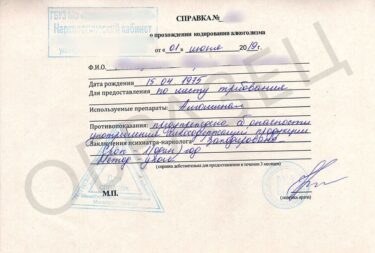 Наркологический кабинет
СПРАВКА №
о прохождении кодирования алкоголизма
от « 01 » июля 2019 г.
Ф.И.О.
Дата рождения 15.04 1975
Для предоставления по месту требования
Используемые препараты:
Противопоказания: предупреждена об опасности
употребления спиртсодержащей продукции
Заключения психиатра-нарколога Закодирована
Срок - 1 (один) год
Метод - укол
(справка действительна для предоставления в течение 3 месяцев)
М.П.
(подпись врача)
ОБРАЗЕЦ